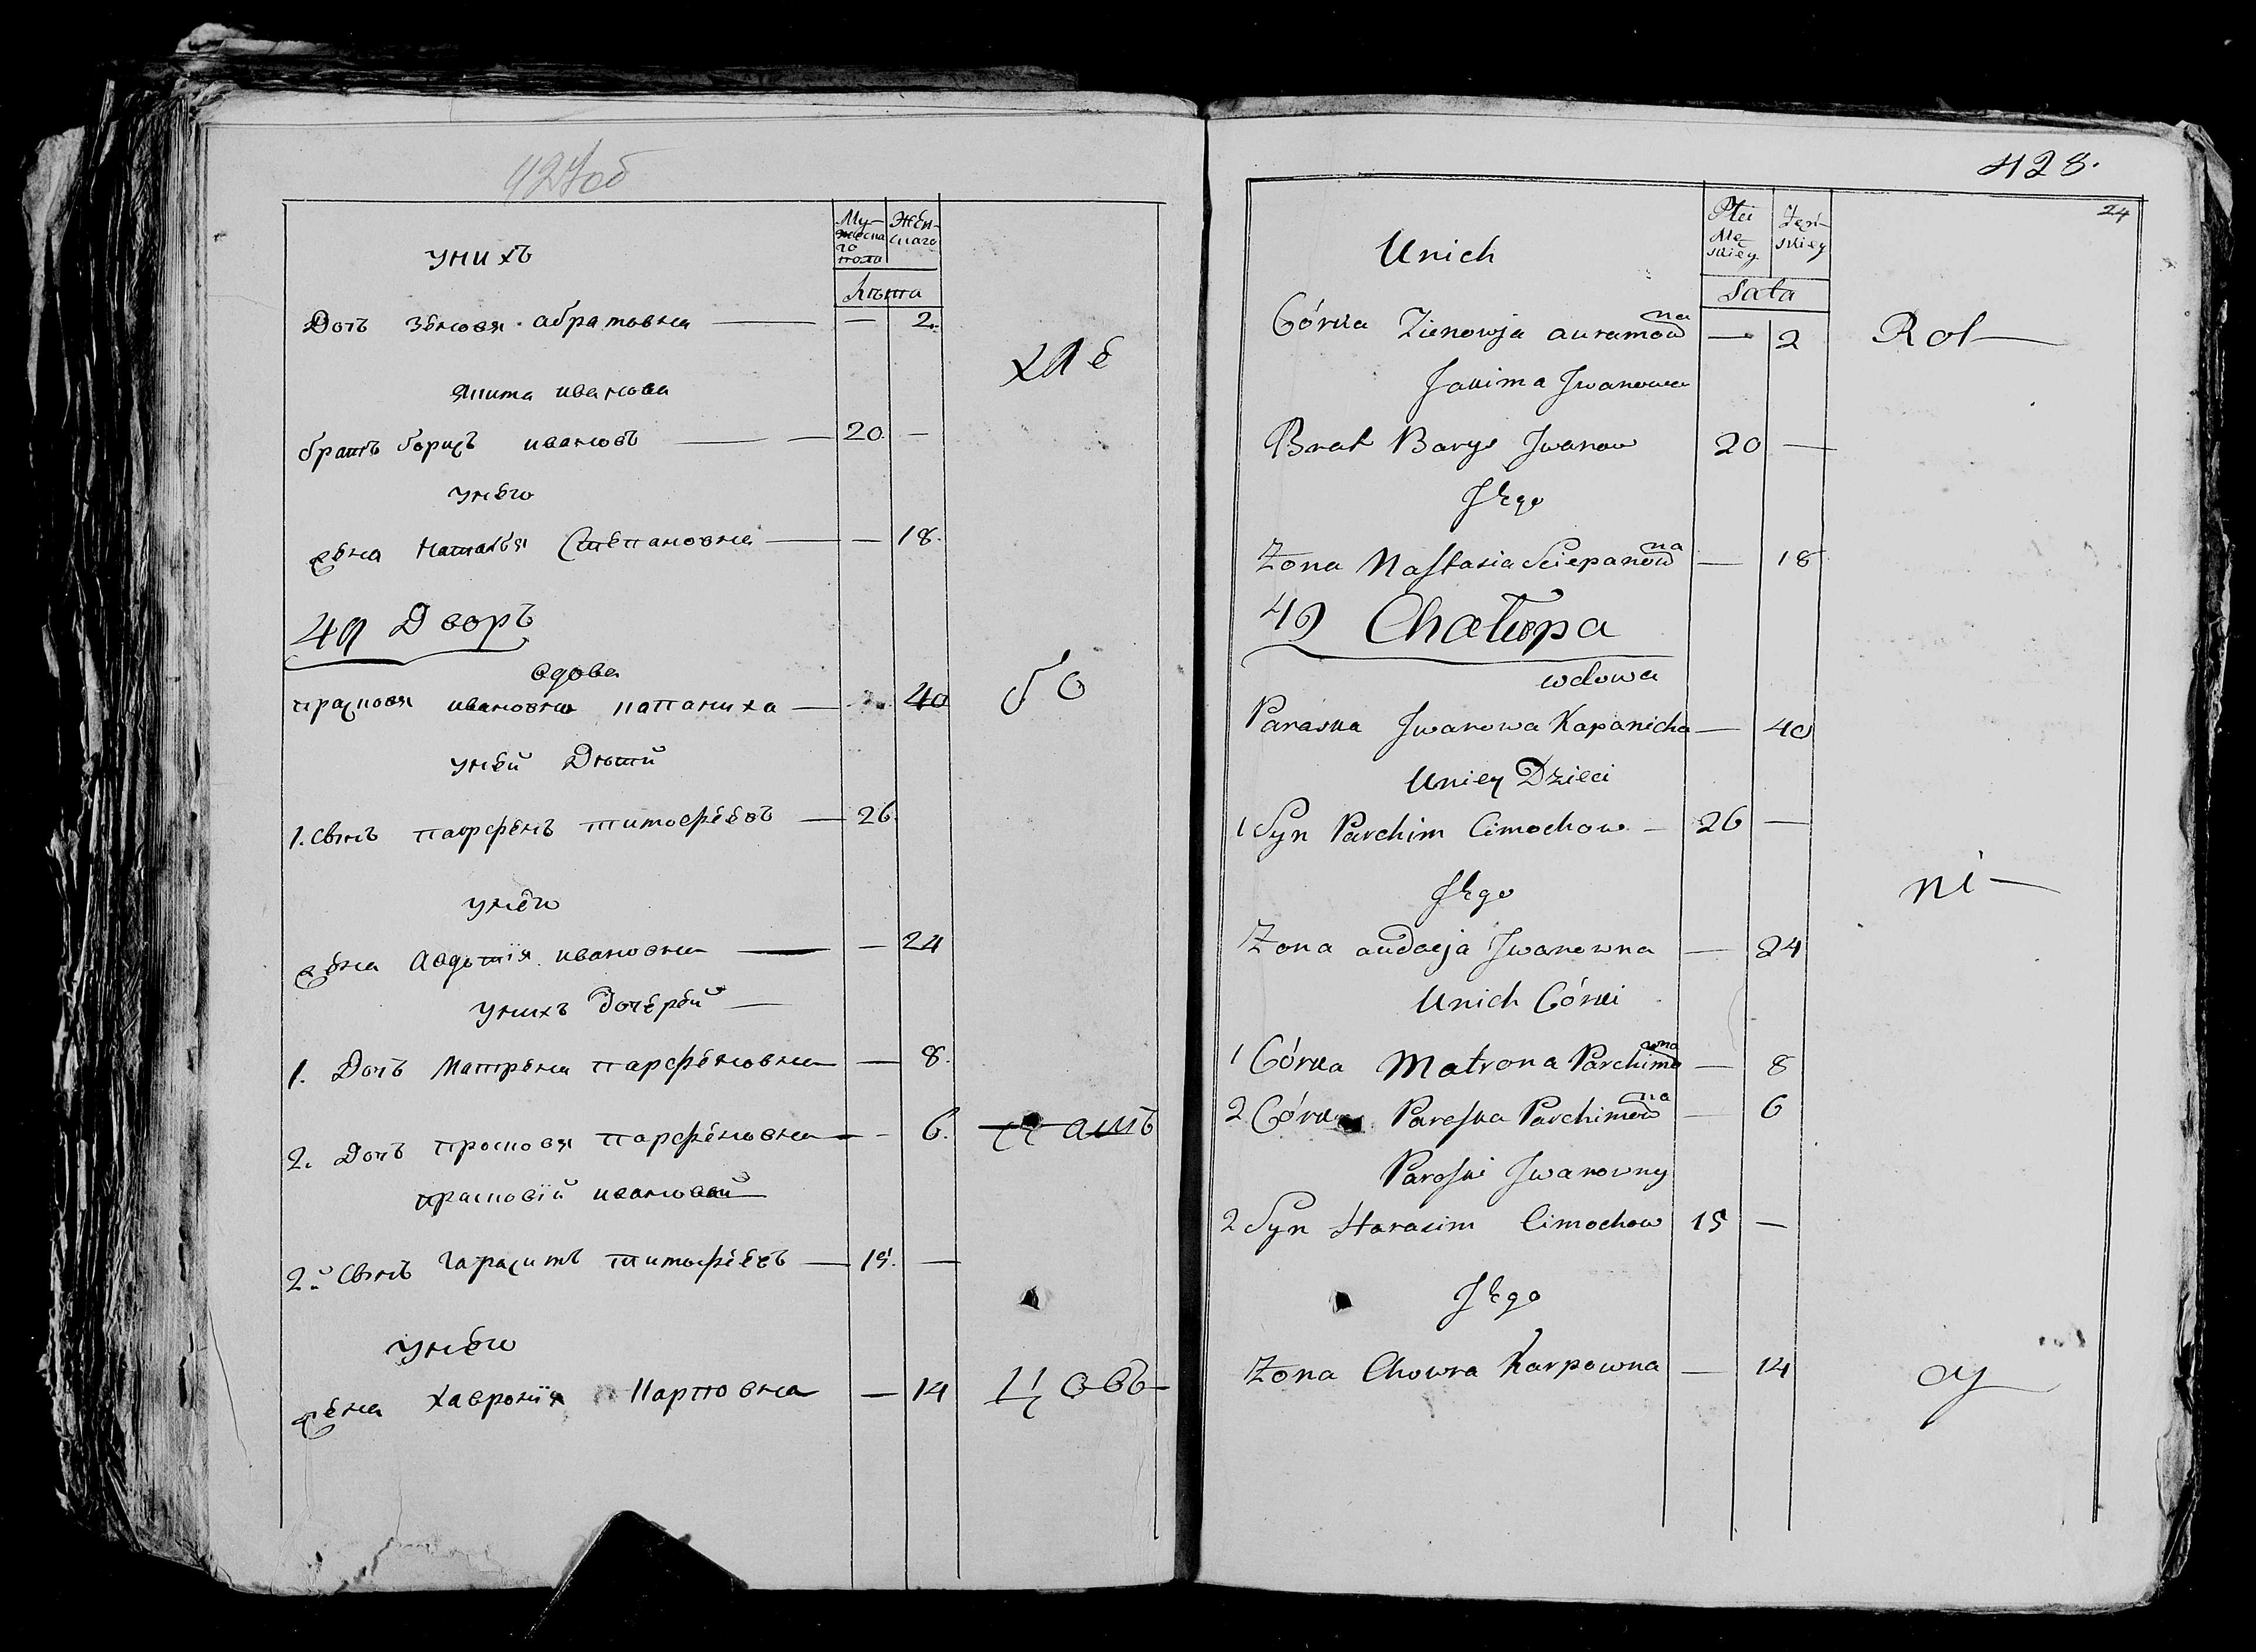 427об
Му-
жеска
го
пола
Жен-
скаго
Унихъ
Лѣта
Дочь Зеновя абрамовна — — 2.
хле
Якима иванова
братъ борисъ ивановъ — — 20. —
Унего
жена Наталья Степановна — — 18.
49 Дворъ
вдова
прасковя ивановна капаниха — 40
бо
Уней Дѣти
1. Сынъ парфенъ тимофеевъ — 26.
Унего
жена Авдотія ивановна — — 24
Унихъ Дочерей —
1. Дочь Матрена парфеновна — 8.
2. Дочь просковя парфеновна — - 6.
пашъ
прасковіи ивановой
2й Сынъ гарасимъ тимофеевъ — 15. —
Унего
жена Хавронія Карповна — 14
цовъ
428.
24
Płci
Mę
skiey
Żeń-
skiey
Unich
Lata
Córka Zienowja auramowna — 2
Rol—
Jakima Iwanowa
Brat Barys Iwanow 20 —
Jego
Zona Nastasia Sciepanowna — 18
49 Chałupa
wdowa
Paraska Iwanowa Kapanicha — 40
Uniey Dzieci
1 Syn Parchim Cimochow — 26 —
ni—
Jego
Zona audocja Iwanowna — 24
Unich Córki
1 Córka Matrona Parchimowna — 8
2 Córka Paraska Parchimowna — 6
Paraski Iwanowny
2 Syn Harasim Cimochow 15 —
Jego
Zona Chowra Karpowna — 14
cy—